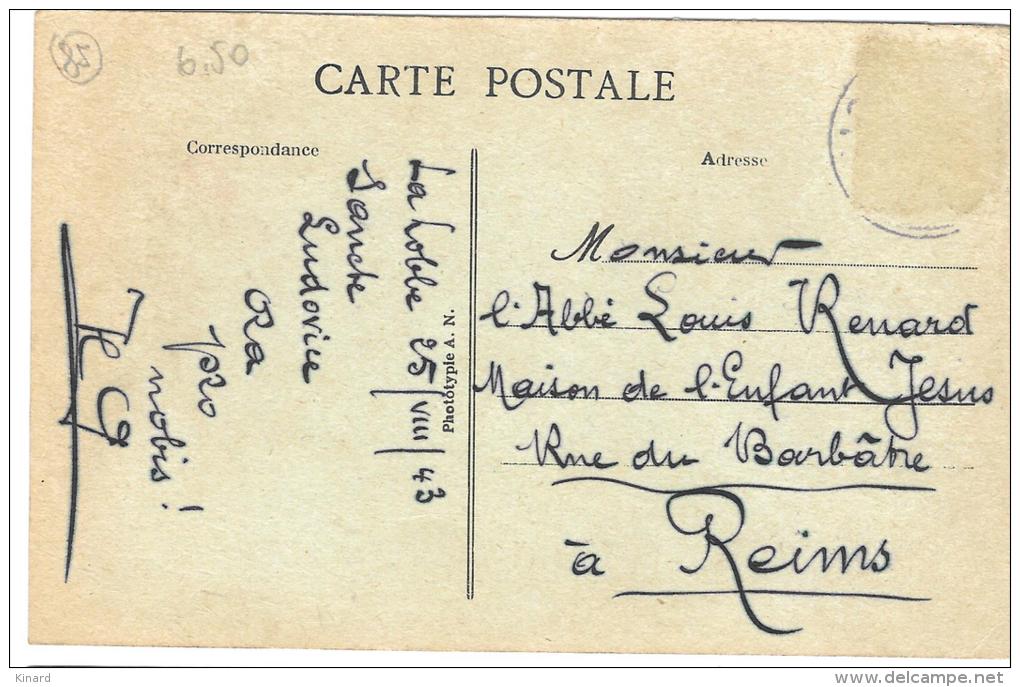 85
6.50
CARTE POSTALE
Correspondance
Adresse
La Lobbe 25/VIII/43
Sancte
Ludovice
Ora
pro
nobis !
Phototypie A. N.
Monsieur
l'Abbé Louis Renard
Maison de l'Enfant Jesus
Rue du Barbâtre
à Reims
Kinard
delcampe.net